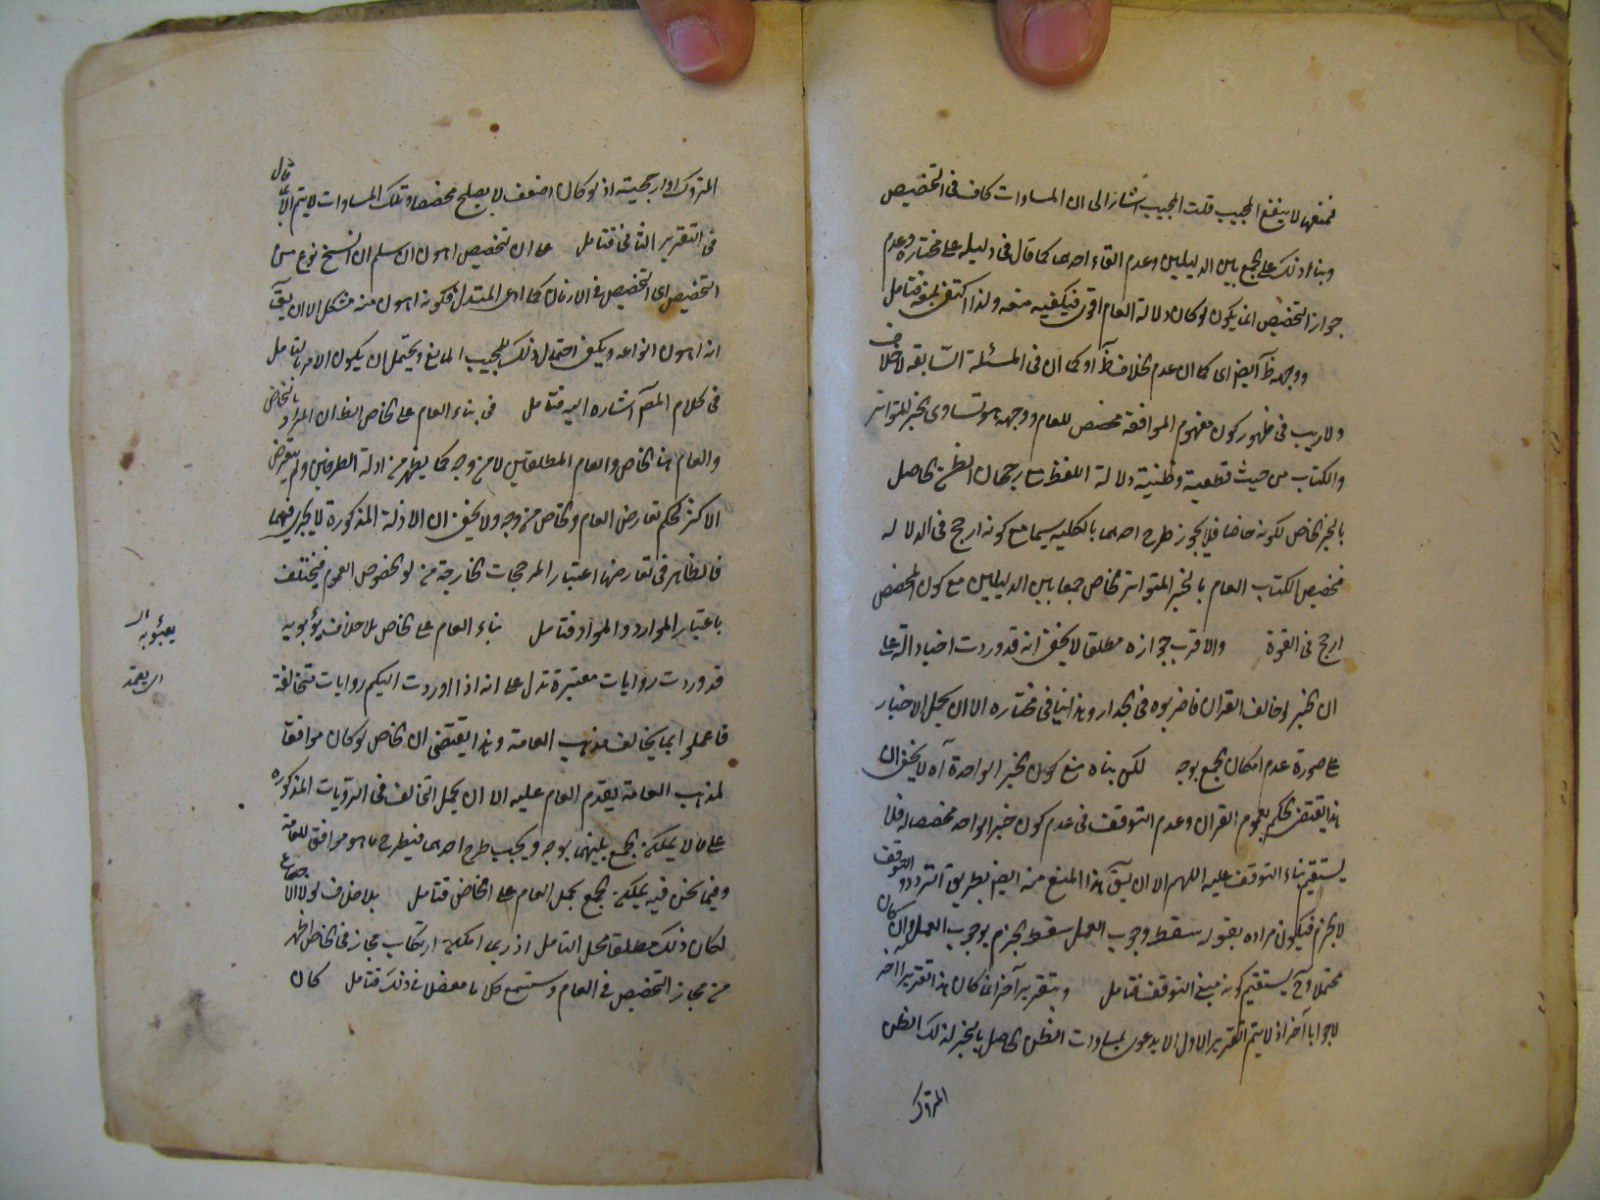 فمنعها لا ينفع المجيب قلت المجيب اشار الى ان المساوات كاف فى التخصيص
وبناء ذلك على الجمع بين الدليلين وعدم القاء احدهما كما قال فى دليله على مختاره وعدم
جواز التخصيص انما يكون لو كان دلالة العام اقوى فيكفيه منعه ولذا اكتفى بمنعه فتامل
ووجهه ظ ايض اى كما ان عدم الخلاف ظ او كما ان فى المسئلة السابقه لا خلاف
ولا ريب فى ظهور كون مفهوم الموافقة مخصص للعام ووجهه هو تساوى الخبر المتواتر
والكتاب من حيث قطعية وظنية دلالة اللفظ مع رجحان الظن الحاصل
بالخبر الخاص لكونه خاصا فلا يجوز طرح احدهما بالكليه سيما مع كونه ارجح فى الدلاله
فتخصيص الكتاب العام بالخبر المتواتر الخاص جمعا بين الدليلين مع كون المخصص
ارجح فى القوة والاقرب جوازه مطلقا لا يخفى انه قد وردت اخبار دالة على
ان الخبر اذا خالف القران فاضربوه فى الجدار وهذا ينافى مختاره الا ان يحمل الاخبار
على صورة عدم امكان الجمع بوجه لكن بناه منع كون الخبر الواحد آه لا يخفى ان
هذا يقتضى الحكم بعموم القران وعدم التوقف فى عدم كون خبر الواحد مخصصا له فلا
يستقيم بناء التوقف عليه اللهم الا ان يق هذا المنع منه ايض بطريق التردد والتوقف
لا الجزم فيكون مراده بقوله سقط وجوب العمل سقط الجزم بوجوب العمل وان كان
محتملا وح يستقيم كونه مبنى التوقف فتامل وبتقرير آخر انما كان هذا تقريرا آخر
لا جوابا آخر اذ لا يتم التقرير الاول الا بدعوى مساوات الظن الحاصل بالخبر لذلك الظن
المتروك
المتروك او ارجحيته اذ لو كان اضعف لا يصلح مخصصا وتلك المساوات لا يتم الا بما قال
فى التقرير الثانى فتامل على ان تخصيص اهون ان سلم ان النسخ نوع من
التخصيص اى التخصيص فى الازمان كما ادعى المستدل فكونه اهون منه مشكل الا ان يق
انه اهون انواعه ويكفى احتمال ذلك للمجيب المانع ويحتمل ان يكون الامر بالتامل
فى كلام المص اشاره اليه فتامل فى بناء العام على الخاص الظ ان المراد بالخاص
والعام هنا الخاص والعام المطلقين لا من وجه كما يظهر من ادلة الطرفين ولم يتعرض
الاكثر لحكم تعارض العام والخاص من وجه ولا يخفى ان الادلة المذكورة لا يجرى فيهما
فالظاهر فى تعارضهما اعتبار المرجحات الخارجة من لو الخصوص العموم فيختلف
باعتبار الموارد والمواد فتامل بناء العام على الخاص بلا خلاف يؤبه به
قد وردت روايات معتبرة تدل على انه اذا وردت اليكم روايات متخالفة
فاعملوا بما يخالف مذهب العامة وهذا يقتضى ان الخاص لو كان موافقا
لمذهب العامة يقدم العام عليه الا ان يحمل التخالف فى الروايات المذكوره
على ما لا يمكن الجمع بينهما بوجه ويجب طرح احدهما فيطرح ما هو موافق للعامة
وفيما نحن فيه يمكن الجمع بحمل العام على الخاص فتامل بلا خلاف لولا الاجماع
لكان ذلك مطلقا محل التامل اذ ربما امكن ارتكاب مجاز فى الخاص اظهر
من مجاز التخصيص فى العام وستسمع كلاما مفصلا فى ذلك فتامل كان
يعبؤ به
اى يعتمد